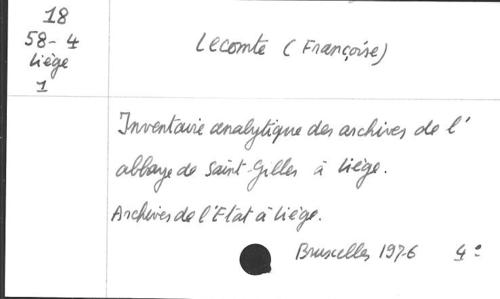 18
58-4
Liège
1
Lecomte (Françoise)
Inventaire analytique des archives de l'
abbaye de Saint-Gilles à Liège.
Archives de l'Etat à Liège.
Bruxelles 1976 4°